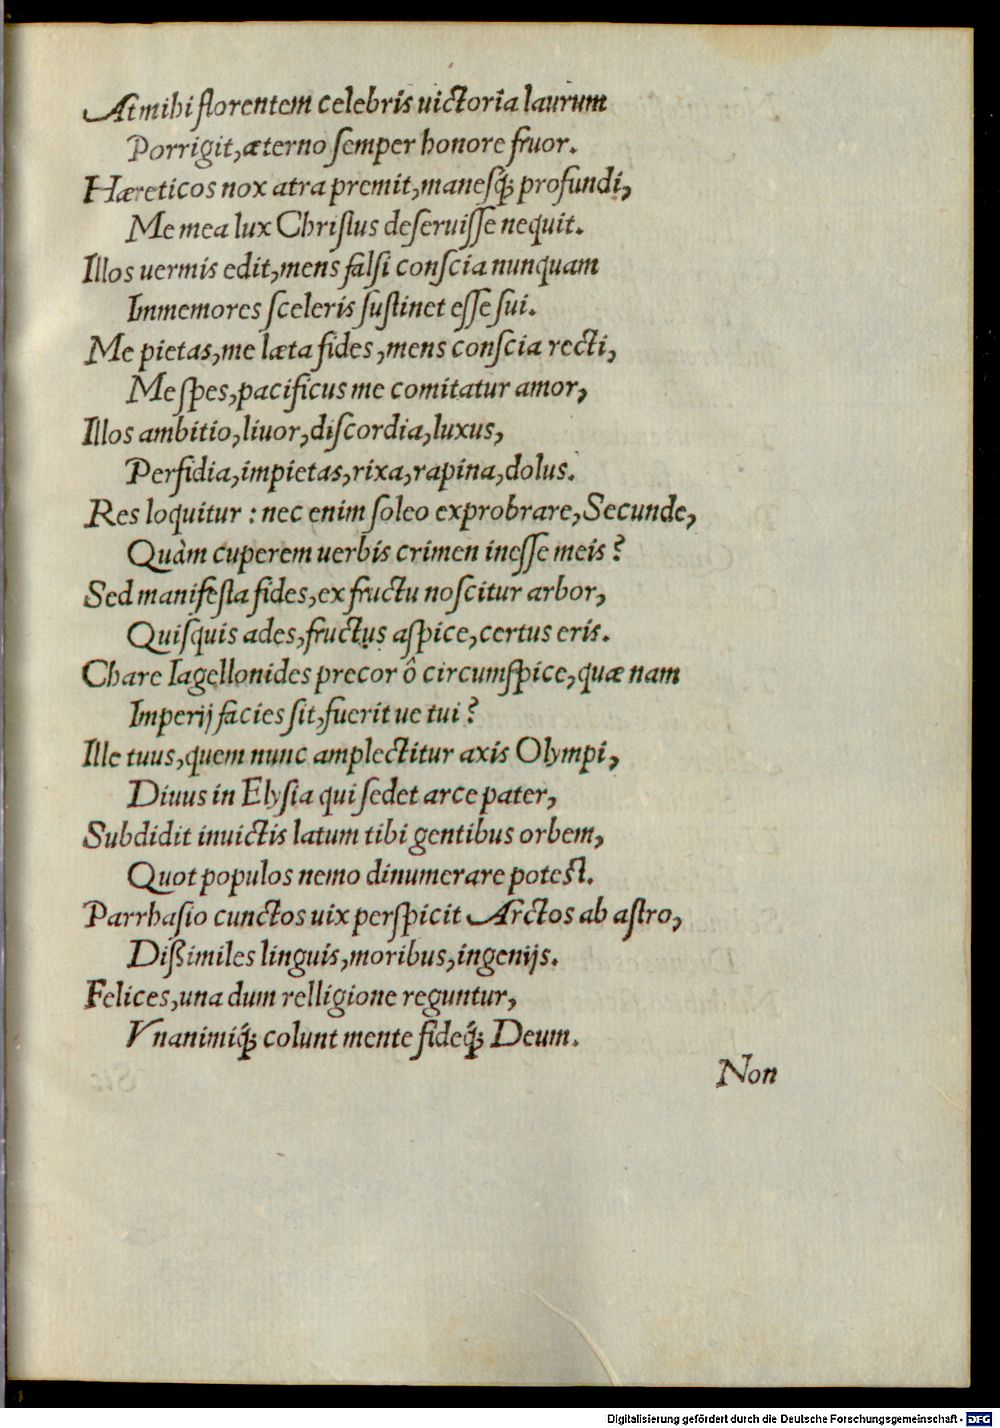 At mihi florentem celebris uictoria laurum
Porrigit, æterno ſemper honore fruor.
Hæreticos nox atra premit, maneſq́; profundi,
Me mea lux Chriſtus deſeruiſſe nequit.
Illos uermis edit, mens falſi conſcia nunquam
Immemores ſceleris ſuſtinet eſſe ſui.
Me pietas, me læta fides, mens conſcia recti,
Me ſpes, pacificus me comitatur amor,
Illos ambitio, liuor, diſcordia, luxus,
Perfidia, impietas, rixa, rapina, dolus.
Res loquitur: nec enim ſoleo exprobrare, Secunde,
Quàm cuperem uerbis crimen ineſſe meis?
Sed manifeſta fides, ex fructu noſcitur arbor,
Quiſquis ades, fructus aſpice, certus eris.
Chare Iagellonides precor ô circumſpice, quæ nam
Imperij facies ſit, fuerit ue tui?
Ille tuus, quem nunc amplectitur axis Olympi,
Diuus in Elyſia qui ſedet arce pater,
Subdidit inuictis latum tibi gentibus orbem,
Quot populos nemo dinumerare poteſt.
Parrhaſio cunctos uix perſpicit Arctos ab aſtro,
Dißimiles linguis, moribus, ingenijs.
Felices, una dum relligione reguntur,
Vnanimiq́; colunt mente fideq́; Deum.
Non
Digitalisierung gefördert durch die Deutsche Forschungsgemeinschaft - DFG